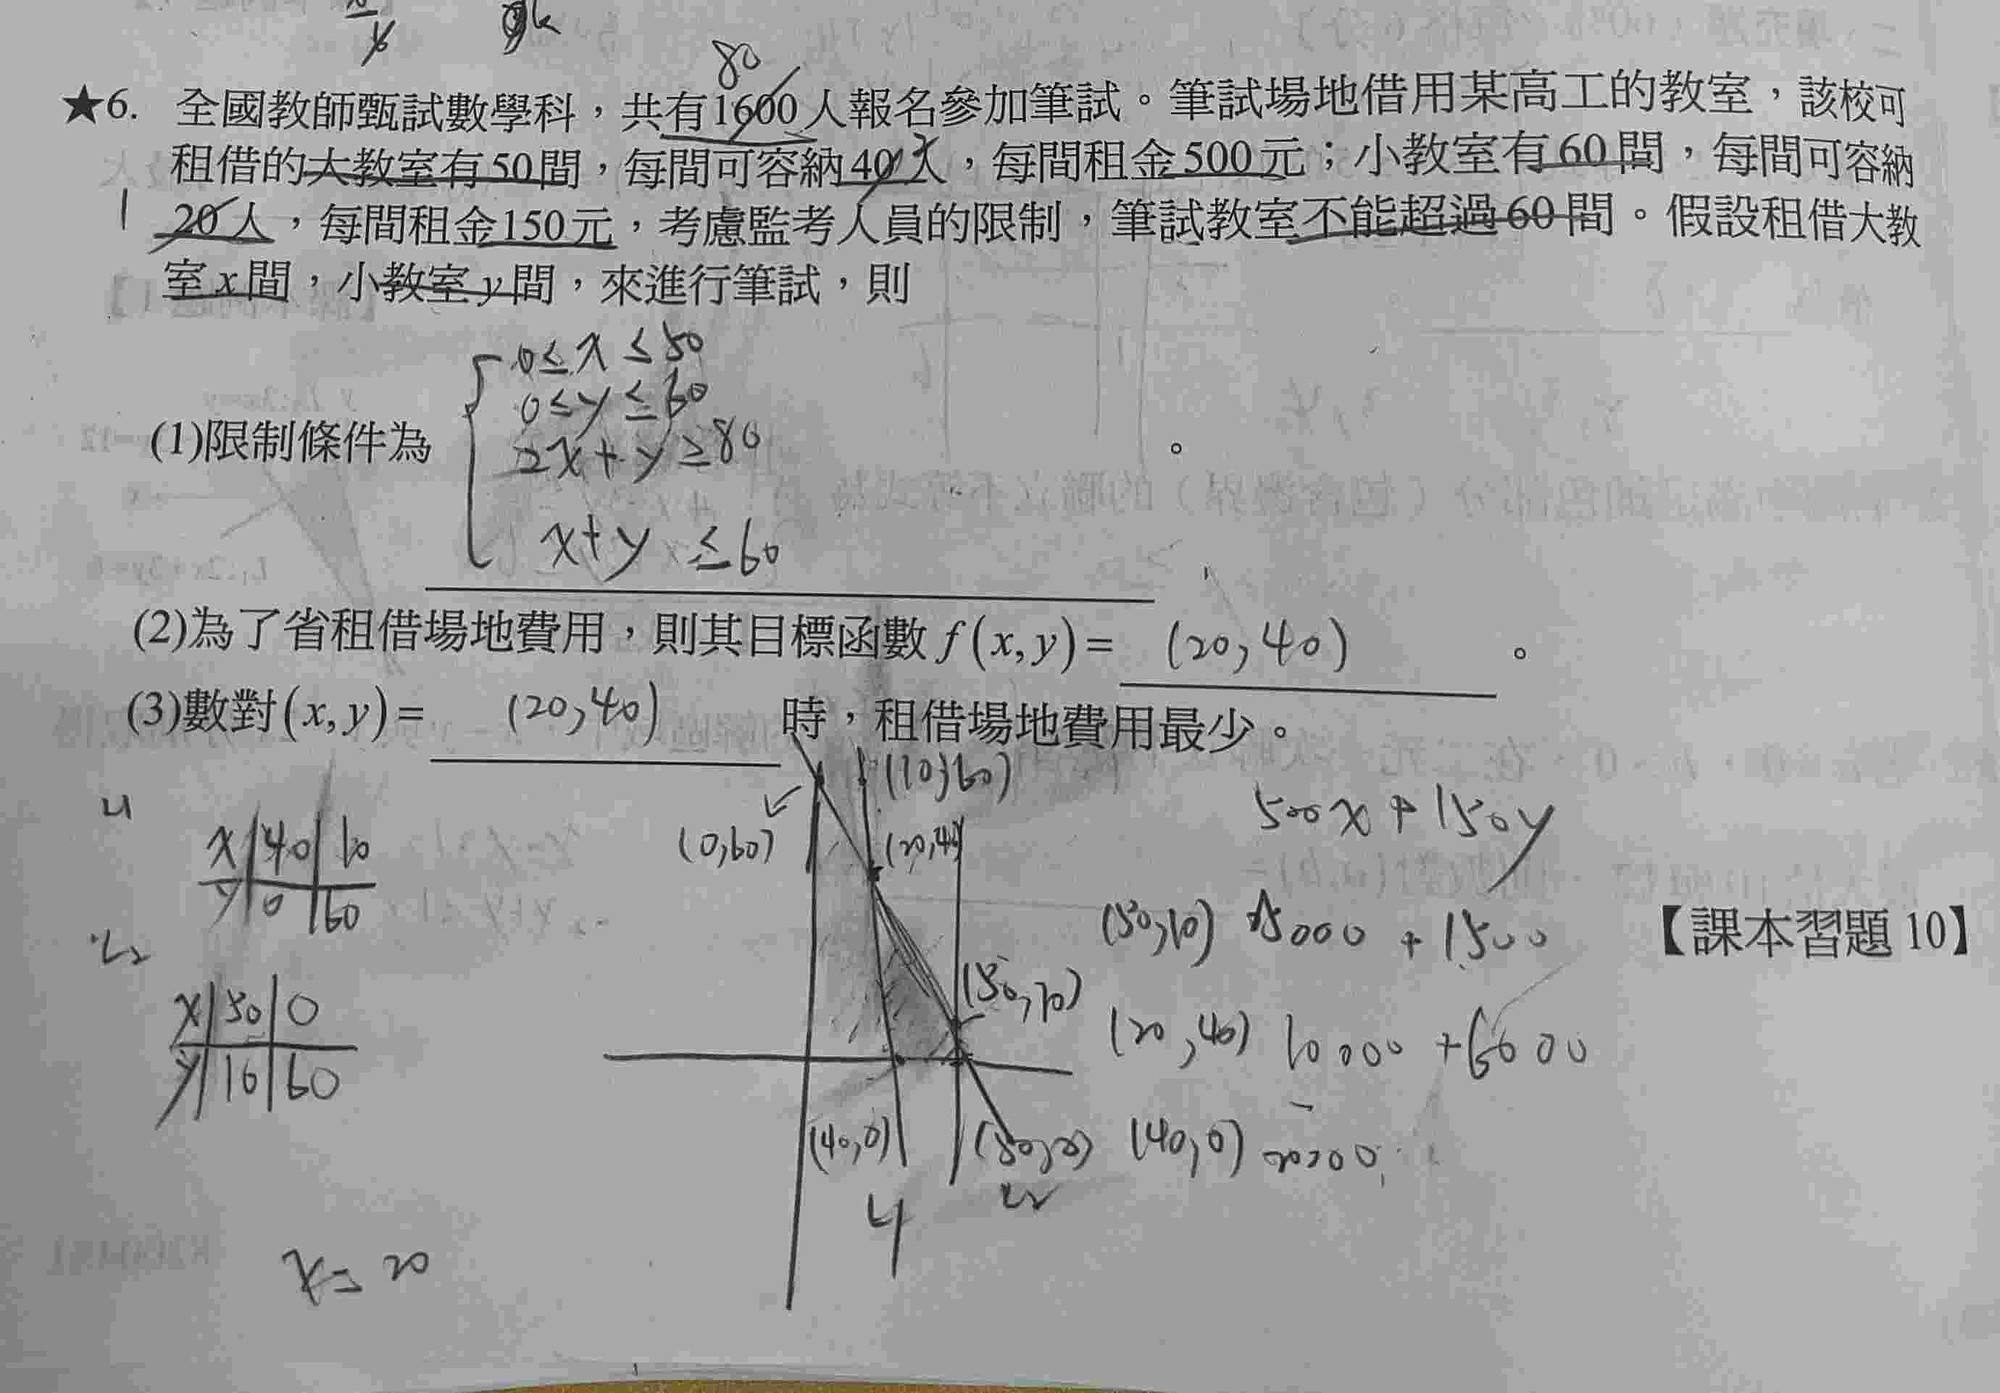 80
★6. 全國教師甄試數學科，共有1600人報名參加筆試。筆試場地借用某高工的教室，該校可
租借的大教室有50間，每間可容納40人，每間租金500元；小教室有60間，每間可容納
1 20人，每間租金150元，考慮監考人員的限制，筆試教室不能超過60間。假設租借大教
室x間，小教室y間，來進行筆試，則
0≤x≤50
0≤y≤60
(1)限制條件為 。
2x+y≥80
x+y≤60
(2)為了省租借場地費用，則其目標函數f(x,y)= (20,40) 。
(3)數對(x,y)= (20,40) 時，租借場地費用最少。
L1
x 40 10
y 0 60
L2
x 50 0
y 10 60
x=20
(10,60)
(0,60)
(20,40)
(50,10)
(40,0)
(50,0)
L1
L2
500x+150y
(50,10) 25000+1500
(20,40) 10000+6000
(40,0) 20000
【課本習題10】